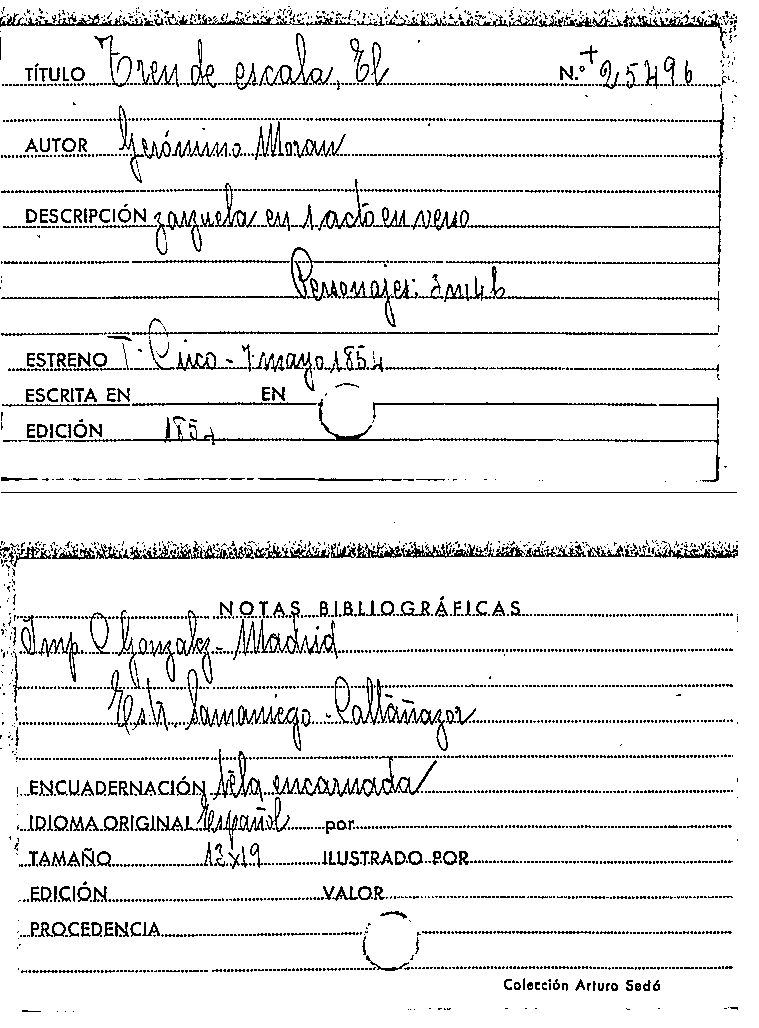 TÍTULO Tren de escala, El N.º + 25496
AUTOR Gerónimo Moran
DESCRIPCIÓN zarzuela en 1 acto en verso
Personajes: 3m4h
ESTRENO T. Circo - 7 mayo 1854
ESCRITA EN EN
EDICIÓN 1854
NOTAS BIBLIOGRÁFICAS
Imp. C Gonzalez - Madrid
Estr. Samaniego - Caltañazor
ENCUADERNACIÓN tela encarnada
IDIOMA ORIGINAL Español por
TAMAÑO 13x19 ILUSTRADO POR
EDICIÓN VALOR
PROCEDENCIA
Colección Arturo Sedó